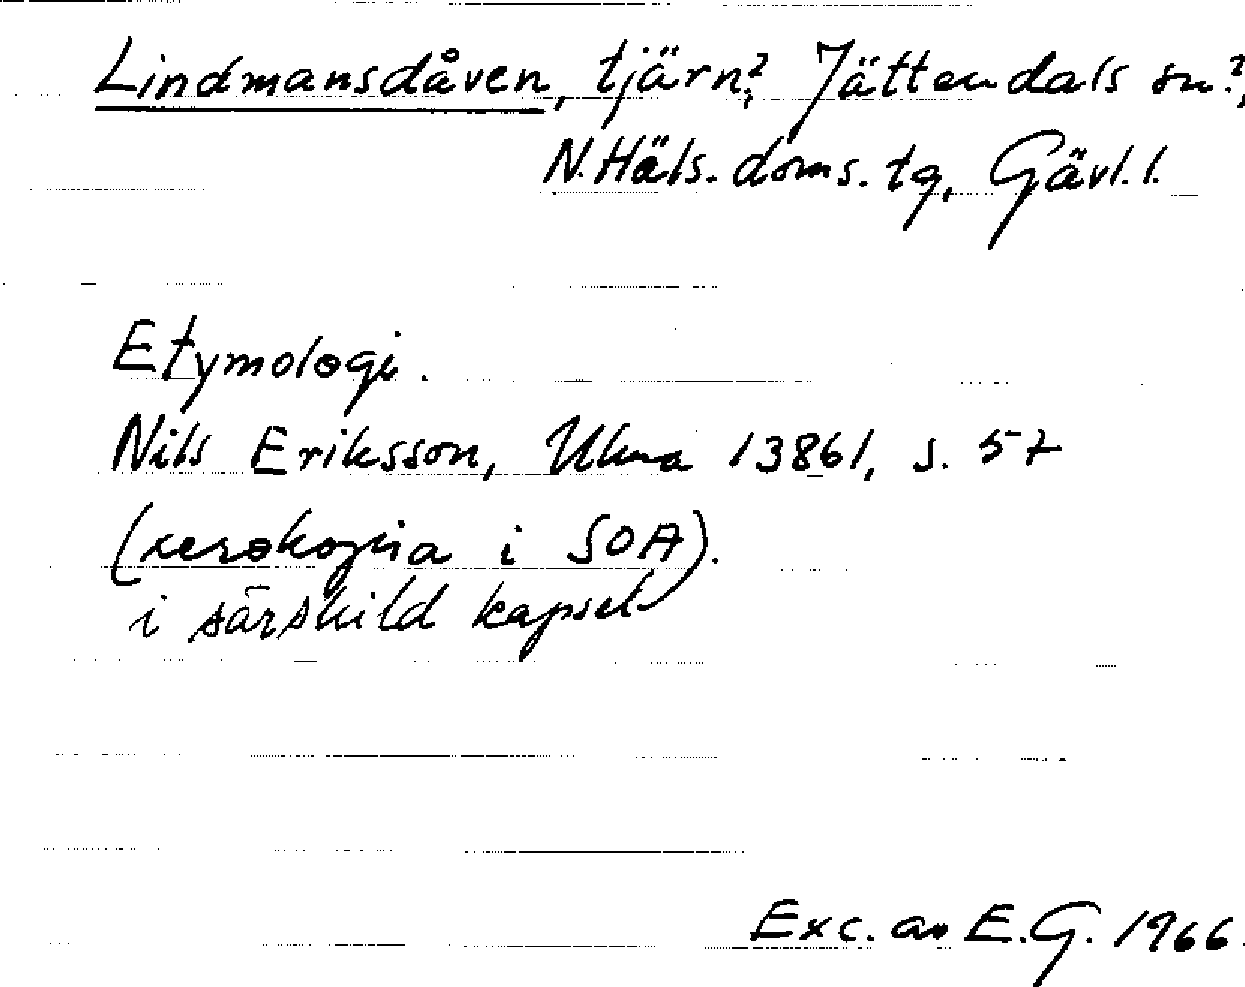 Lindmansdåven, tjärn?, Jättendals sn?,
N.Häls. doms. tg, Gävl. l.
Etymologi.
Nils Eriksson, Ulma 13861, s. 57
(xerokopia i SOA).
i särskild kapsel
Exc. av E.G. 1966.